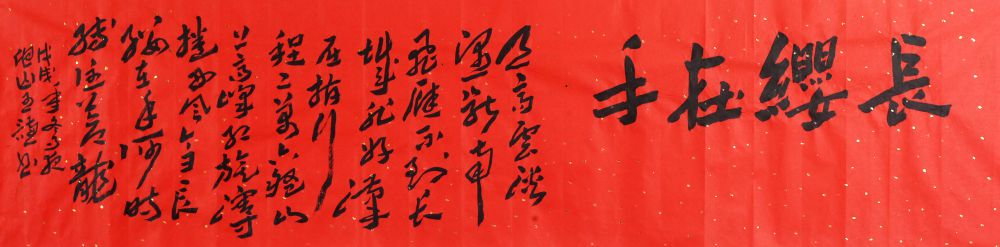 長纓在手
天高雲淡
望斷南
飛雁不到長
城非好漢
屈指行
程二萬六盤山
上高峰紅旗漫
捲西風今日長
纓在手何時
縛住蒼龍
戊戌年冬夜
山書